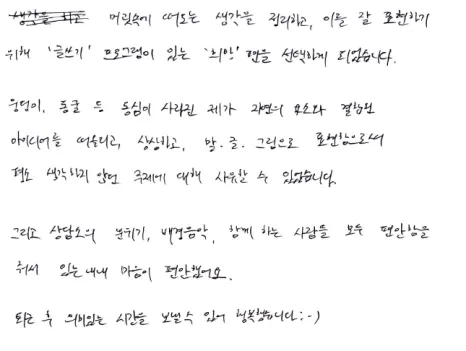 생각을 하고 머릿속에 떠도는 생각을 정리하고, 이를 잘 표현하기
위해 '글쓰기' 프로그램이 있는 '희앗' 만을 선택하게 되었습니다.
웅덩이, 동굴 등 동심이 사라진 제가 자연의 요소와 결합된
아이디어를 떠올리고, 상상하고, 말·글·그림으로 표현함으로써
평소 생각하지 않던 주제에 대해 사유할 수 있었습니다.
그리고 상담소의 분위기, 배경음악, 함께 하는 사람들 모두 편안함을
줘서 있는 내내 마음이 편안했어요.
퇴근 후 의미있는 시간을 보낼 수 있어 행복했습니다:-)